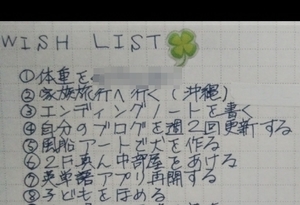 WISH LIST
①体重を
②家族旅行へ行く(沖縄)
③エンディングノートを書く
④自分のブログを週2回更新する
⑤風船アートで犬を作る
⑥2F真ん中部屋をあける
⑦英単語アプリ再開する
⑧子どもをほめる